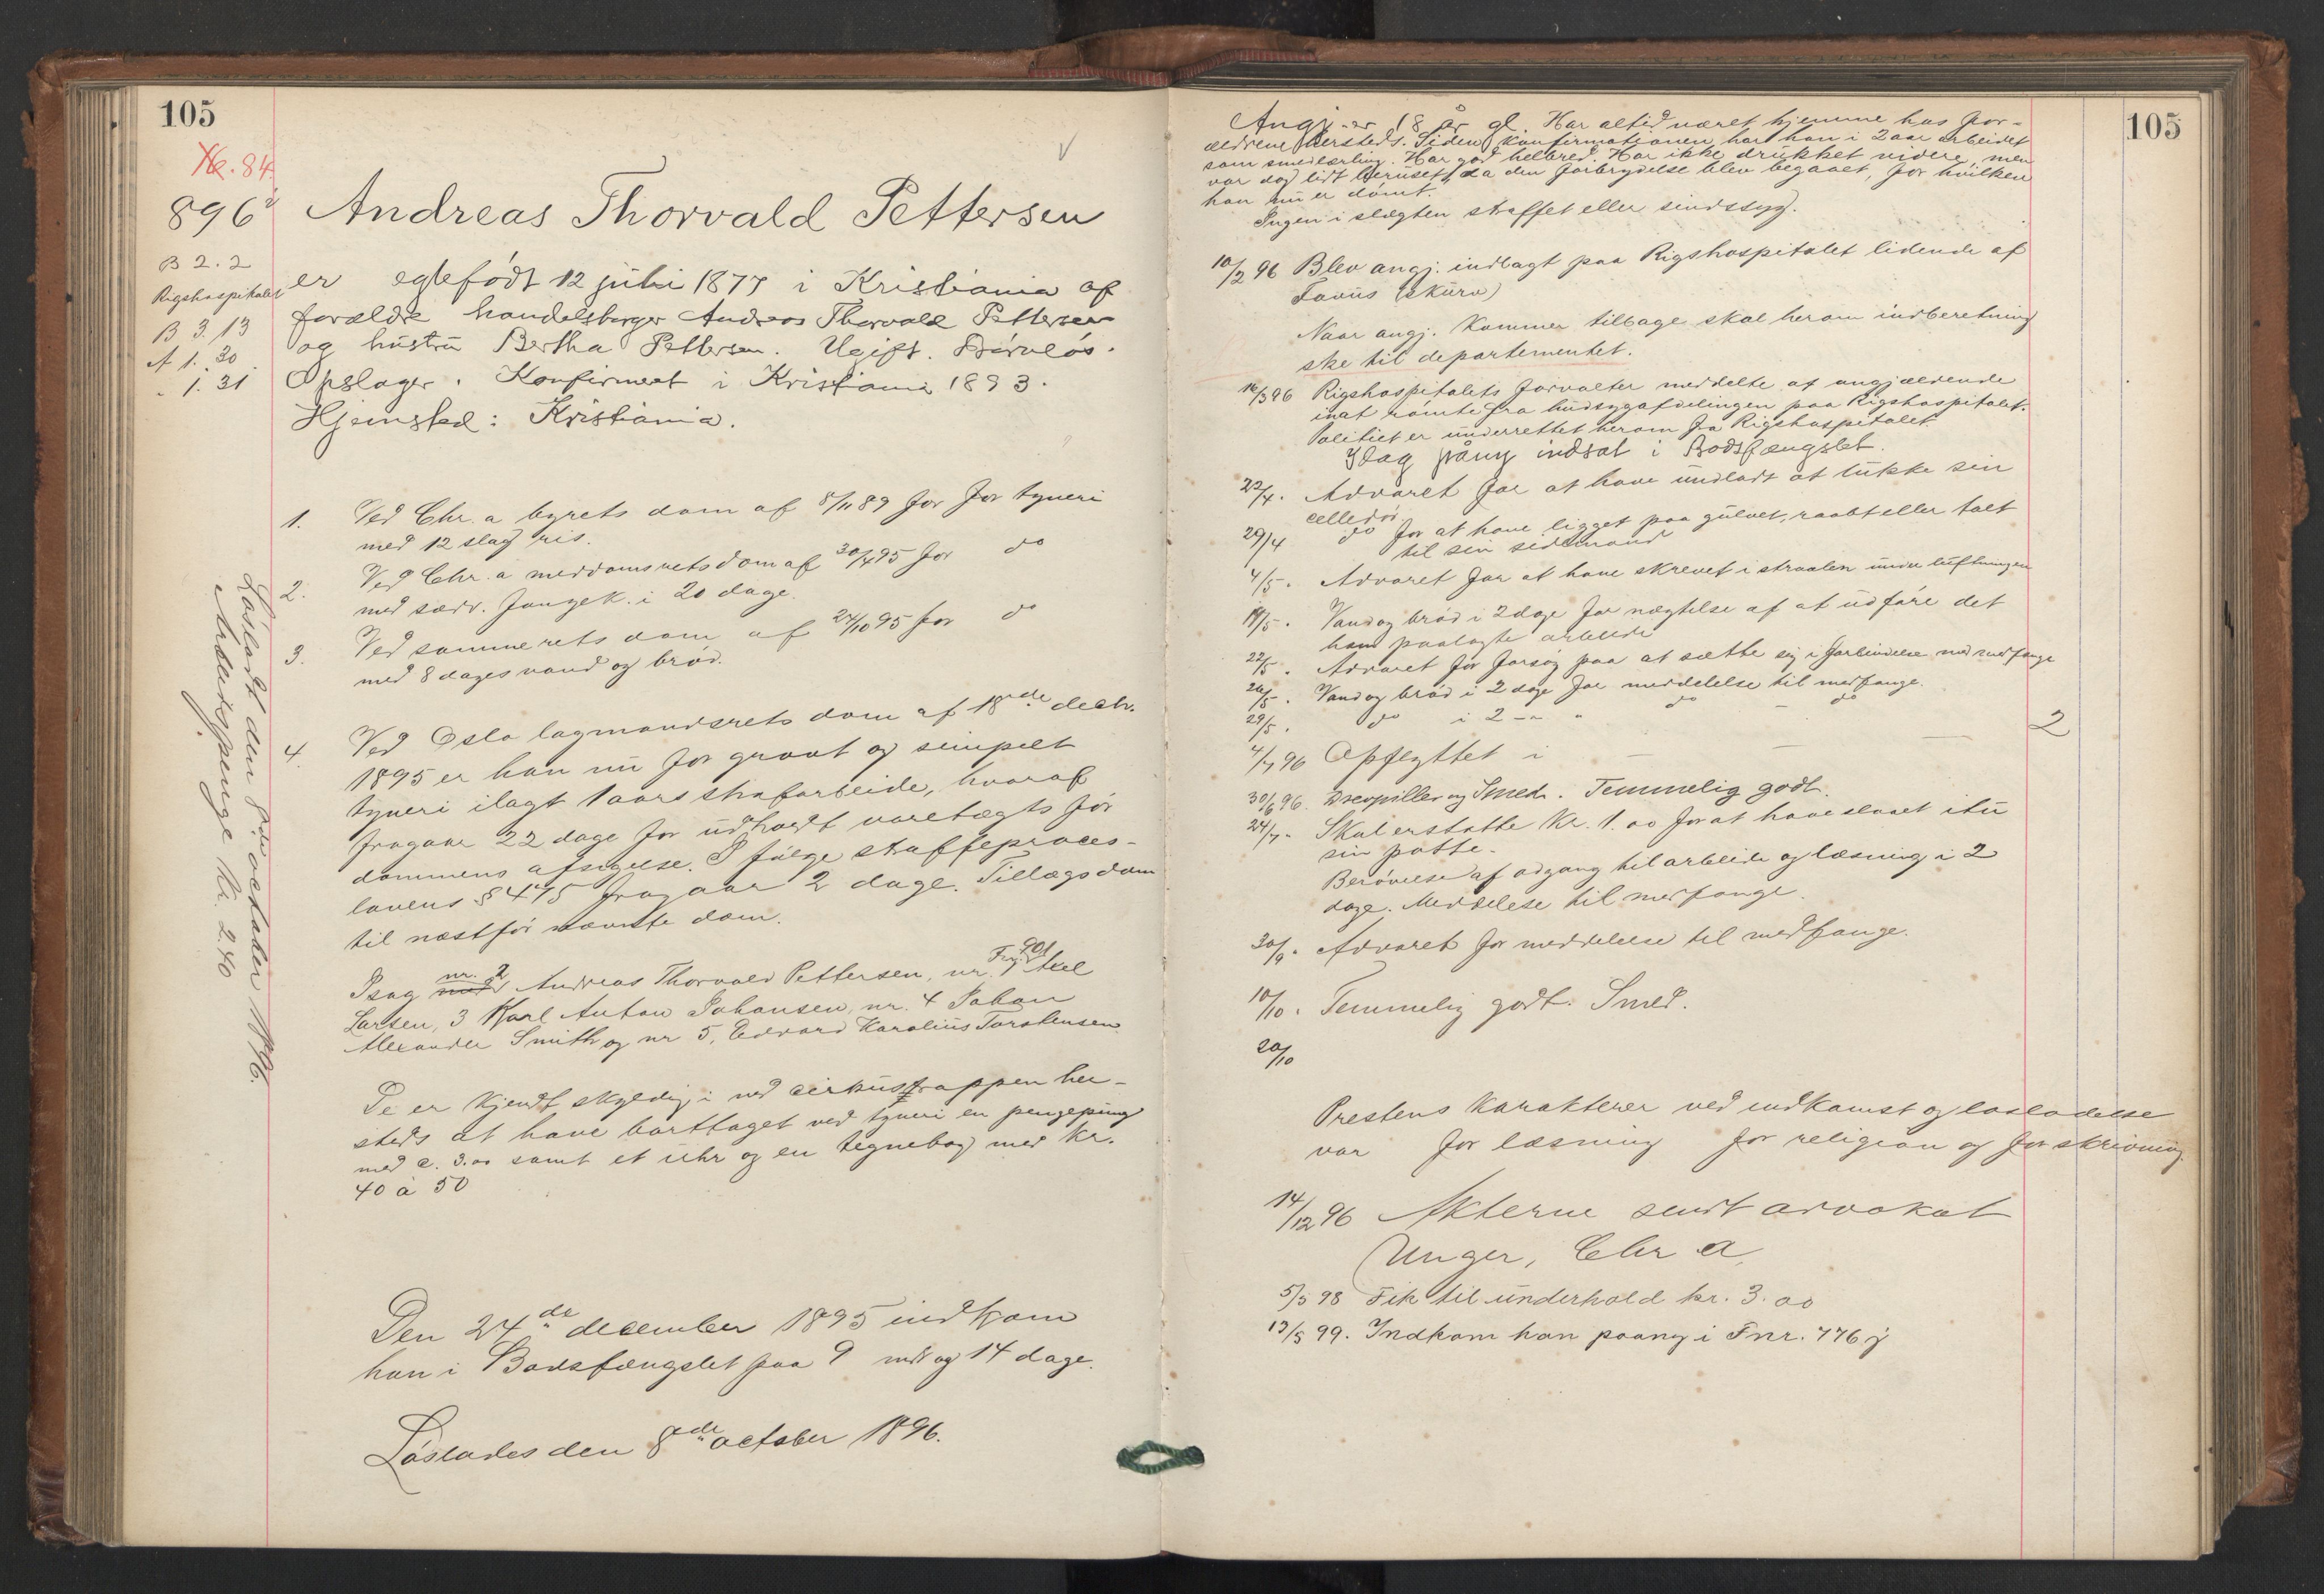 105
Nr. 84.
896 Andreas Thorvald Pettersen
B 2. 2
Rigshospitalet
B 3. 13
A 1. 30
" 1. 31
er egtefødt 12 juli 1877 i Kristiania af
forældre handelsborger Andreas Thorvald Pettersen
og hustru Bertha Pettersen. Ugift. Barnløs.
Opslager. Konfirmeret i Kristiania 1893.
Hjemsted: Kristiania.
1. Ved Chr.a byrets dom af 8/11 89 for for tyveri
med 12 slag ris.
2. Ved Chr.a meddomsrets dom af 30/4 95 for do
med sædv. fangek. i 20 dage.
3. Ved samme rets dom af 24/10 95 for do
med 8 dages vand og brød.
4. Ved Oslo lagmandsrets dom af 18de decbr.
1895 er han nu for grovt og simpelt
tyveri ilagt 1 aars strafarbeide, hvoraf
fragaar 22 dage for udholdt varetægts før
dommens afsigelse. I følge straffeproces-
lovens § 475 fragaar 2 dage. Tillægsdom
til næstfør nævnte dom.
I sag nr. 2 Andreas Thorvald Pettersen, nr. 1 Fnr. 901 Axel
Larsen, 3 Karl Anton Johansen, nr. 4 Johan
Alexander Smith og nr 5, Edvard Karolius Torstensen
De er kjendt skyldig i ved cirkustrappen her-
steds at have borttaget ved tyveri en pengepung
med c. 3.00 samt et uhr og en tegnebog med kr.
40 à 50
Den 24de december 1895 indkom
han i Bodsfængslet paa 9 mdr og 14 dage.
Løslades den 8de october 1896.
Løsladt den 8de october 1896.
Arbeidspenge Kr. 2.40
105
Angj. er 18 år gl. Har altid været hjemme hos for-
ældrene hersteds. Siden konfirmationen har han i 2 aar arbeidet
som smedlærling. Har god helbred. Har ikke drukket videre, men
var dog lidt beruset, da den forbrydelse blev begaaet, for hvilken
han nu er dømt.
Ingen i slægten straffet eller sindssyg.
10/2 96 Blev angj. indlagt paa Rigshospitalet lidende af
Favus (skurv)
Naar angj. kommer tilbage skal herom indberetning
ske til departementet.
16/3 96 Rigshospitalets forvalter meddelte at angjældende
inat rømte fra hudsygafdelingen paa Rigshospitalet.
Politiet er underrettet herom fra Rigshospitalet.
Idag påny indsat i Bodsfængslet.
22/4. Advaret for at have undladt at lukke sin
celledør
29/4 do for at have ligget paa gulvet, raabt eller talt
til sin sidemand
4/5. Advaret for at have skrevet i straalen under luftningen
19/5. Vand og brød i 2 dage for nægtelse af at udføre det
ham paalagte arbeide
22/5. Advaret for forsøg paa at sætte sig i forbindelse med medfange
26/5. Vand og brød i 2 dage for meddelelse til medfange.
29/5. do i 2 - " do - do
4/7 96 Opflyttet i — — — 2
30/6 96. Drevpiller og Smed. Temmelig godt.
24/7. Skal erstatte Kr. 1.00 for at have slaaet itu
sin potte.
Berøvelse af adgang til arbeide og læsning i 2
dage. Meddelelse til medfange.
30/9. Advaret for meddelelse til medfange.
10/10. Temmelig godt. Smed.
20/10
Prestens karakterer ved indkomst og løsladelse
var for læsning for religion og for skrivning.
14/12 96 Akterne sendt advokat
Unger, Chr a.
5/5 98 Fik til underhold kr. 3.00
13/5 99. Indkom han paany i Fnr. 776 j